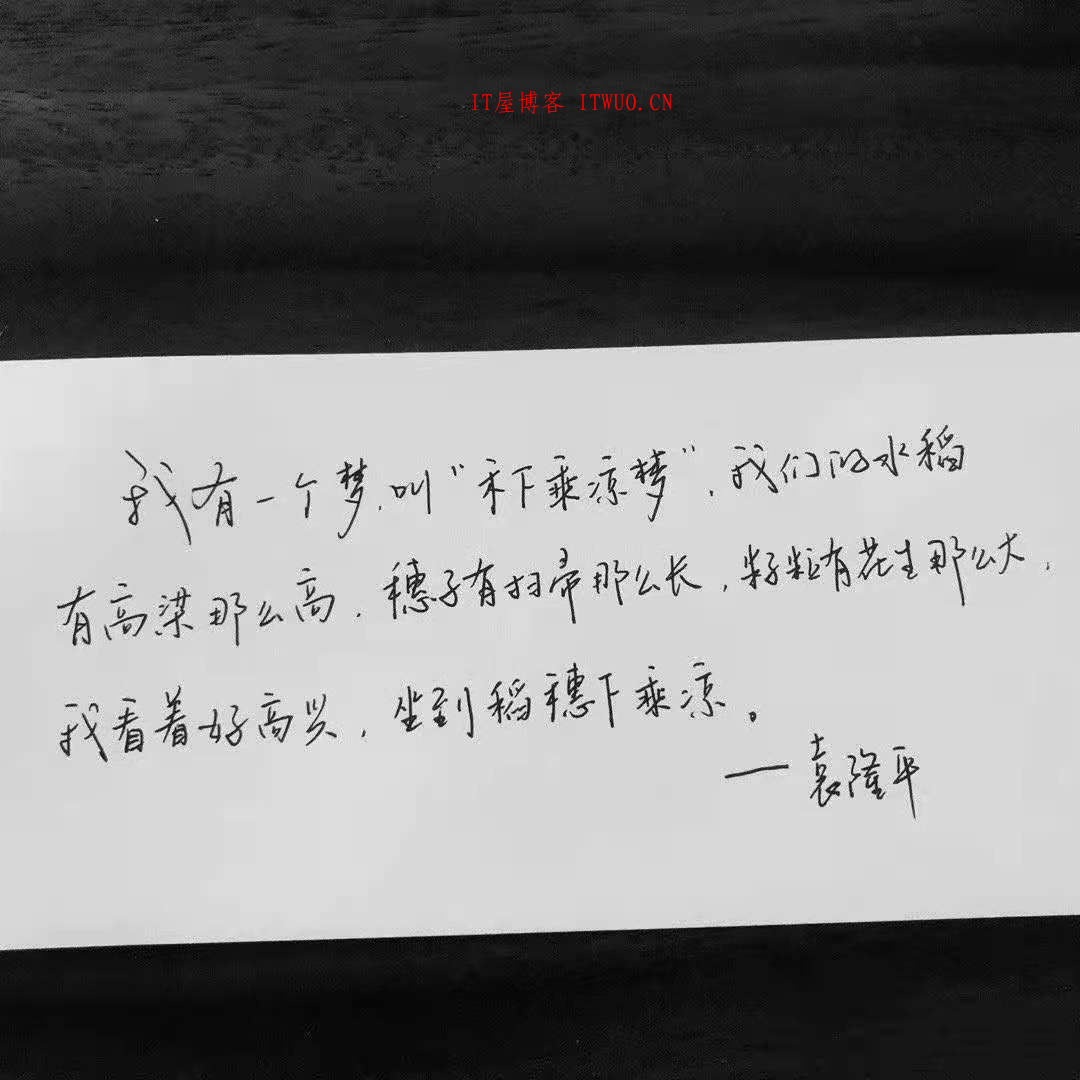 IT屋博客 ITWUO.CN
我有一个梦,叫“禾下乘凉梦”,我们的水稻
有高梁那么高,穗子有扫帚那么长,籽粒有花生那么大,
我看着好高兴,坐到稻穗下乘凉。
——袁隆平